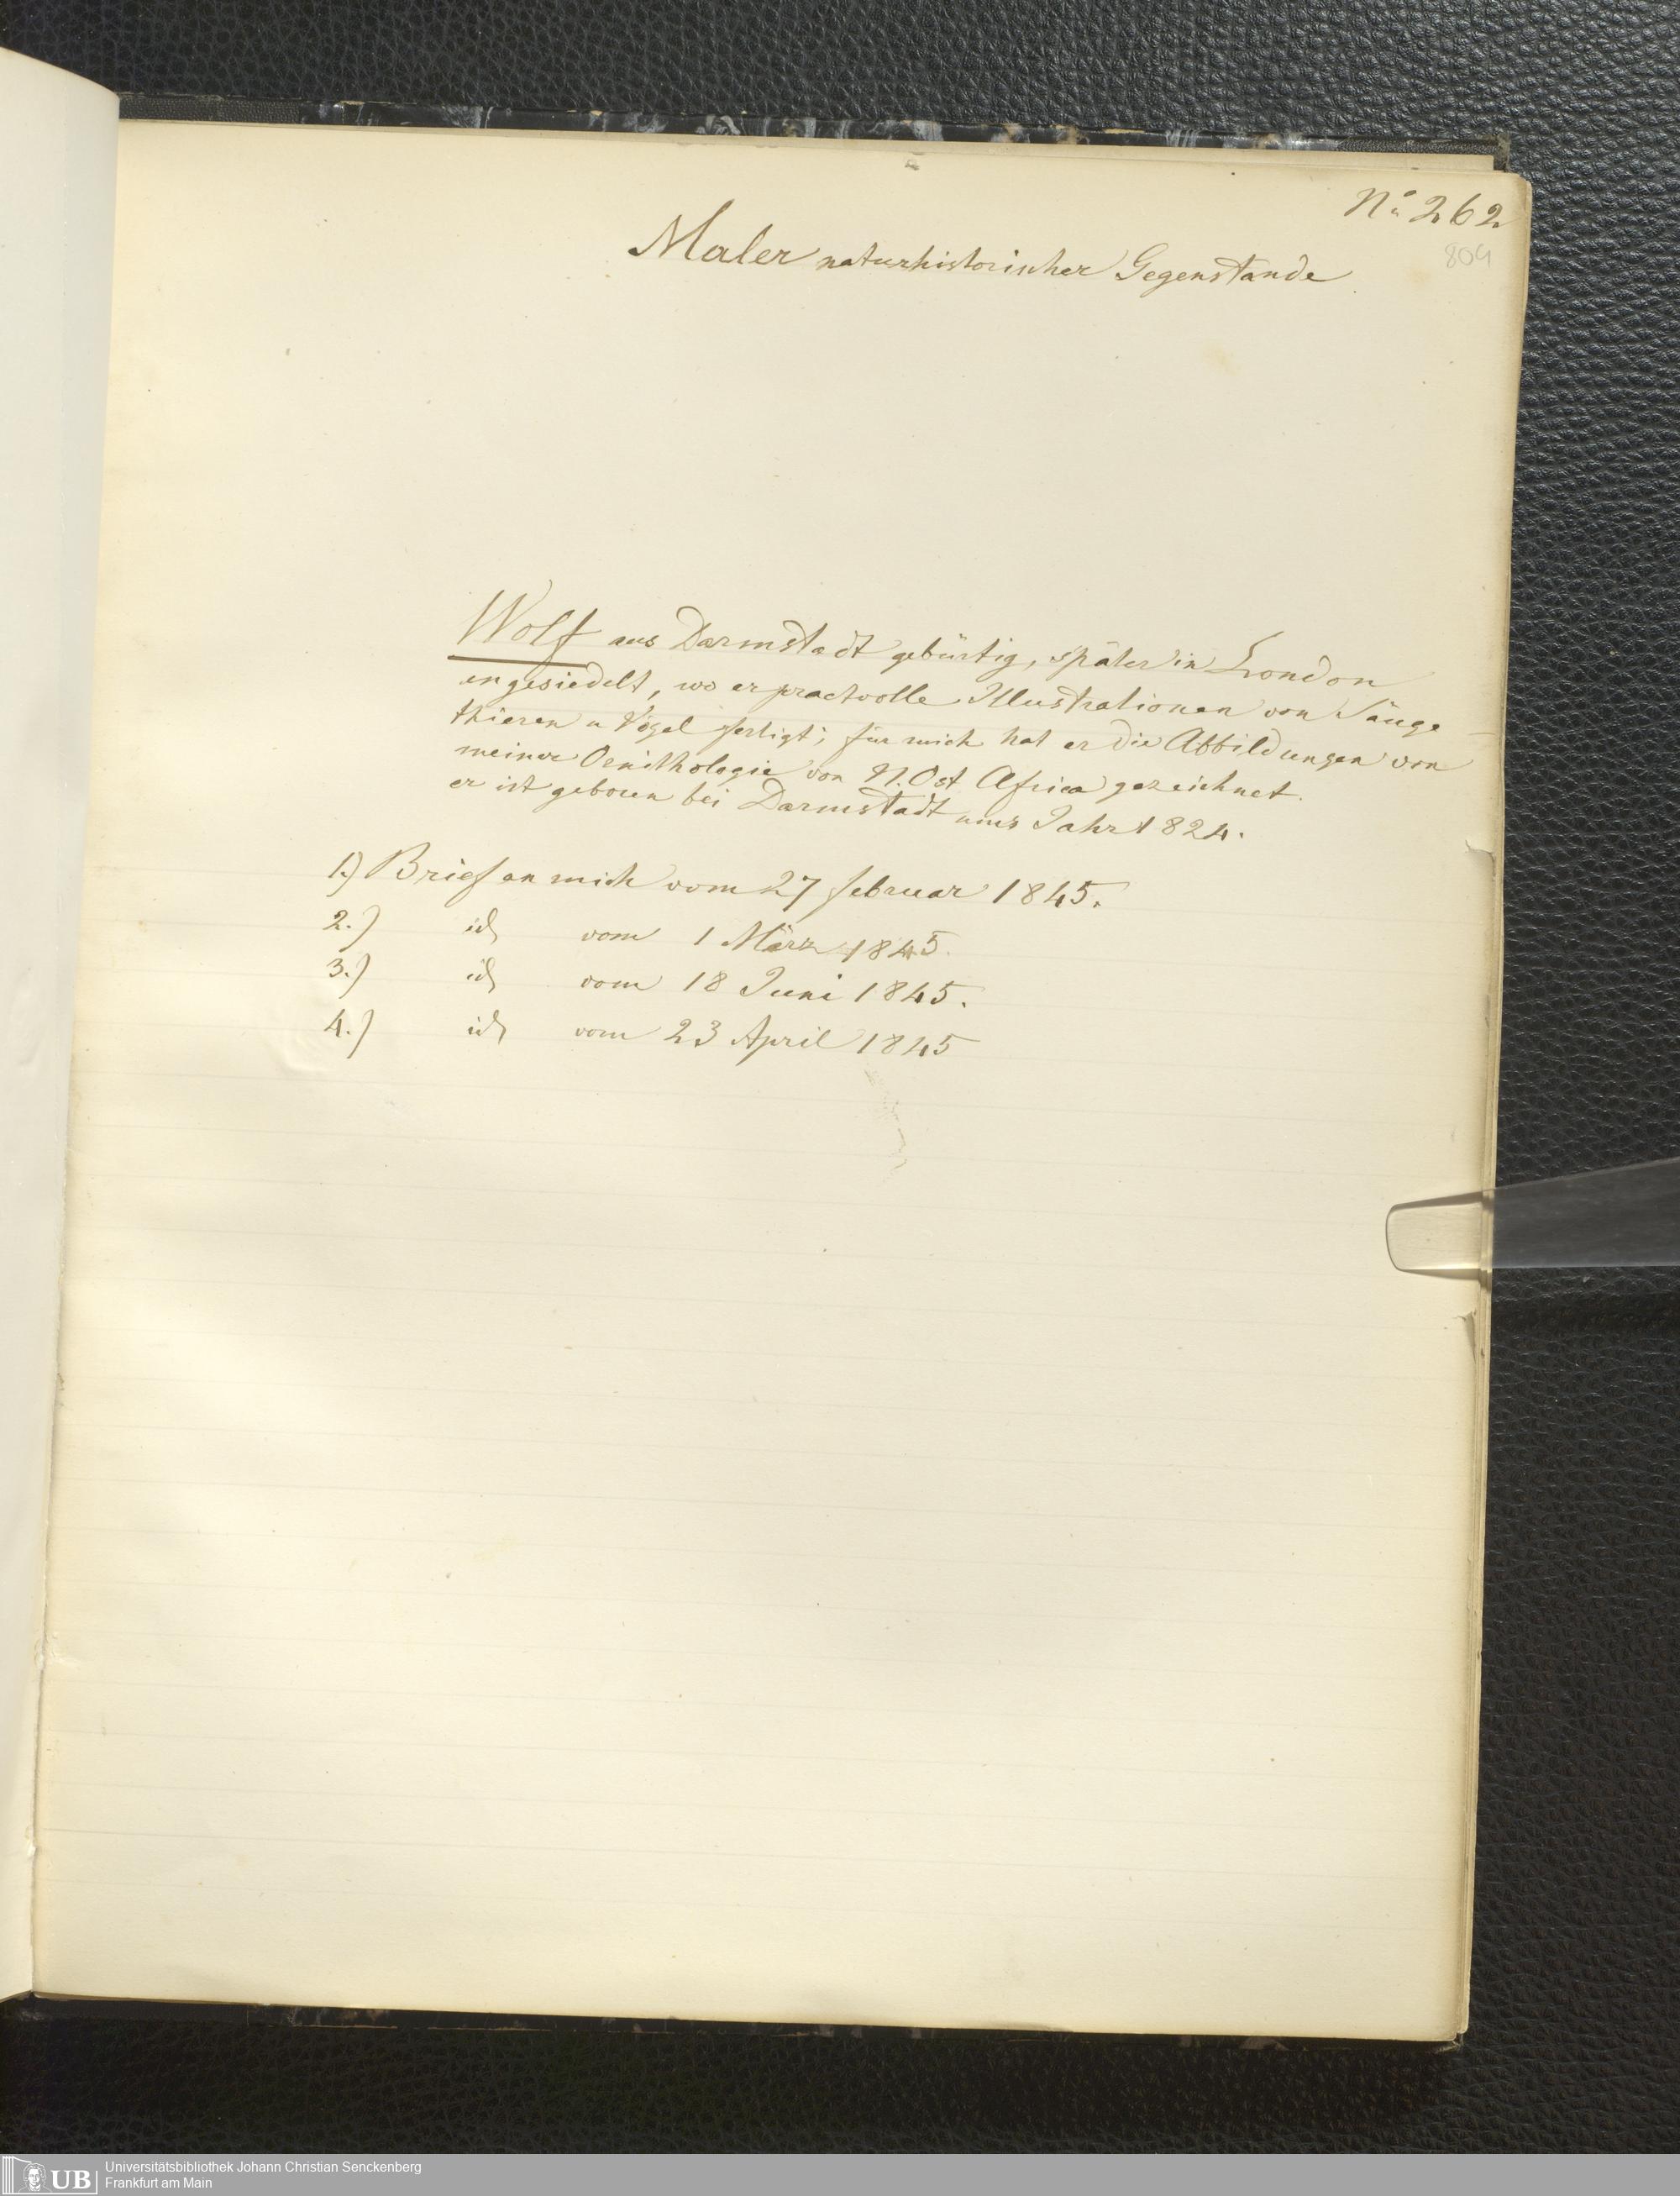 No 262
809
Maler naturhistorischer Gegenstande
Wolf aus Darmstadt gebürtig, später in London
angesiedelt, wo er practvolle Illustrationen von Säuge
thieren u Vögel fertigt; für mich hat er die Abbildungen von
meiner Ornithologie von N. Ost Africa gezeichnet.
er ist geboren bei Darmstadt ums Jahr 1824.
1.) Brief an mich vom 27 februar 1845.
2.) id vom 1 März 1845.
3.) id vom 18 Juni 1845.
4.) id vom 23 April 1845
UB
Universitätsbibliothek Johann Christian Senckenberg
Frankfurt am Main